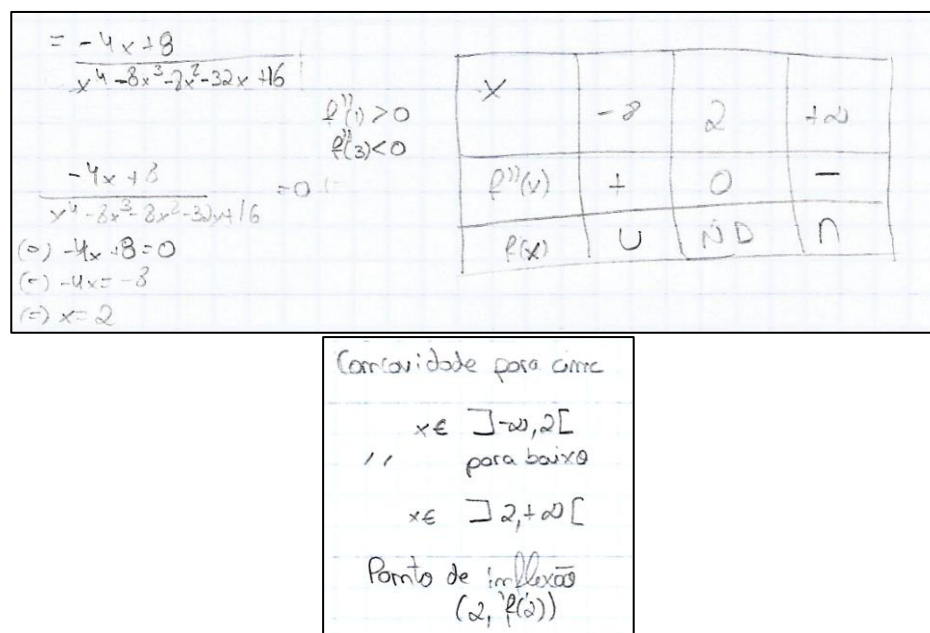 = -4x+8
x⁴-8x³-8x²-32x+16
f''(1)>0
f''(3)<0
-4x+8
x⁴-8x³-8x²-32x+16
=0
(=) -4x+8=0
(=) -4x=-8
(=) x=2
x -∞ 2 +∞
f''(x) + 0 -
f(x) ∪ ND ∩
Concavidade para cima
x∈ ]-∞,2[
,, para baixo
x∈ ]2,+∞[
Ponto de inflexão
(2, f(2))